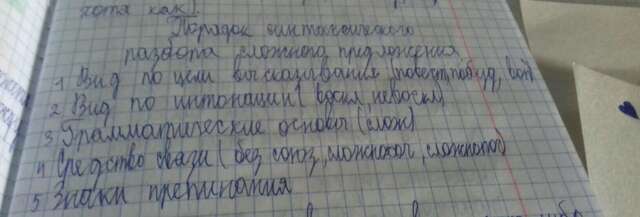 хотя как).
Порядок синтаксического
разбора сложного предложения
1 Вид по цели высказывания (повест, побуд, воп)
2 Вид по интонации (воскл, невоскл)
3 Грамматические основы (слож)
4 Средство связи (без союз, сложносоч, сложнопод)
5 Знаки препинания